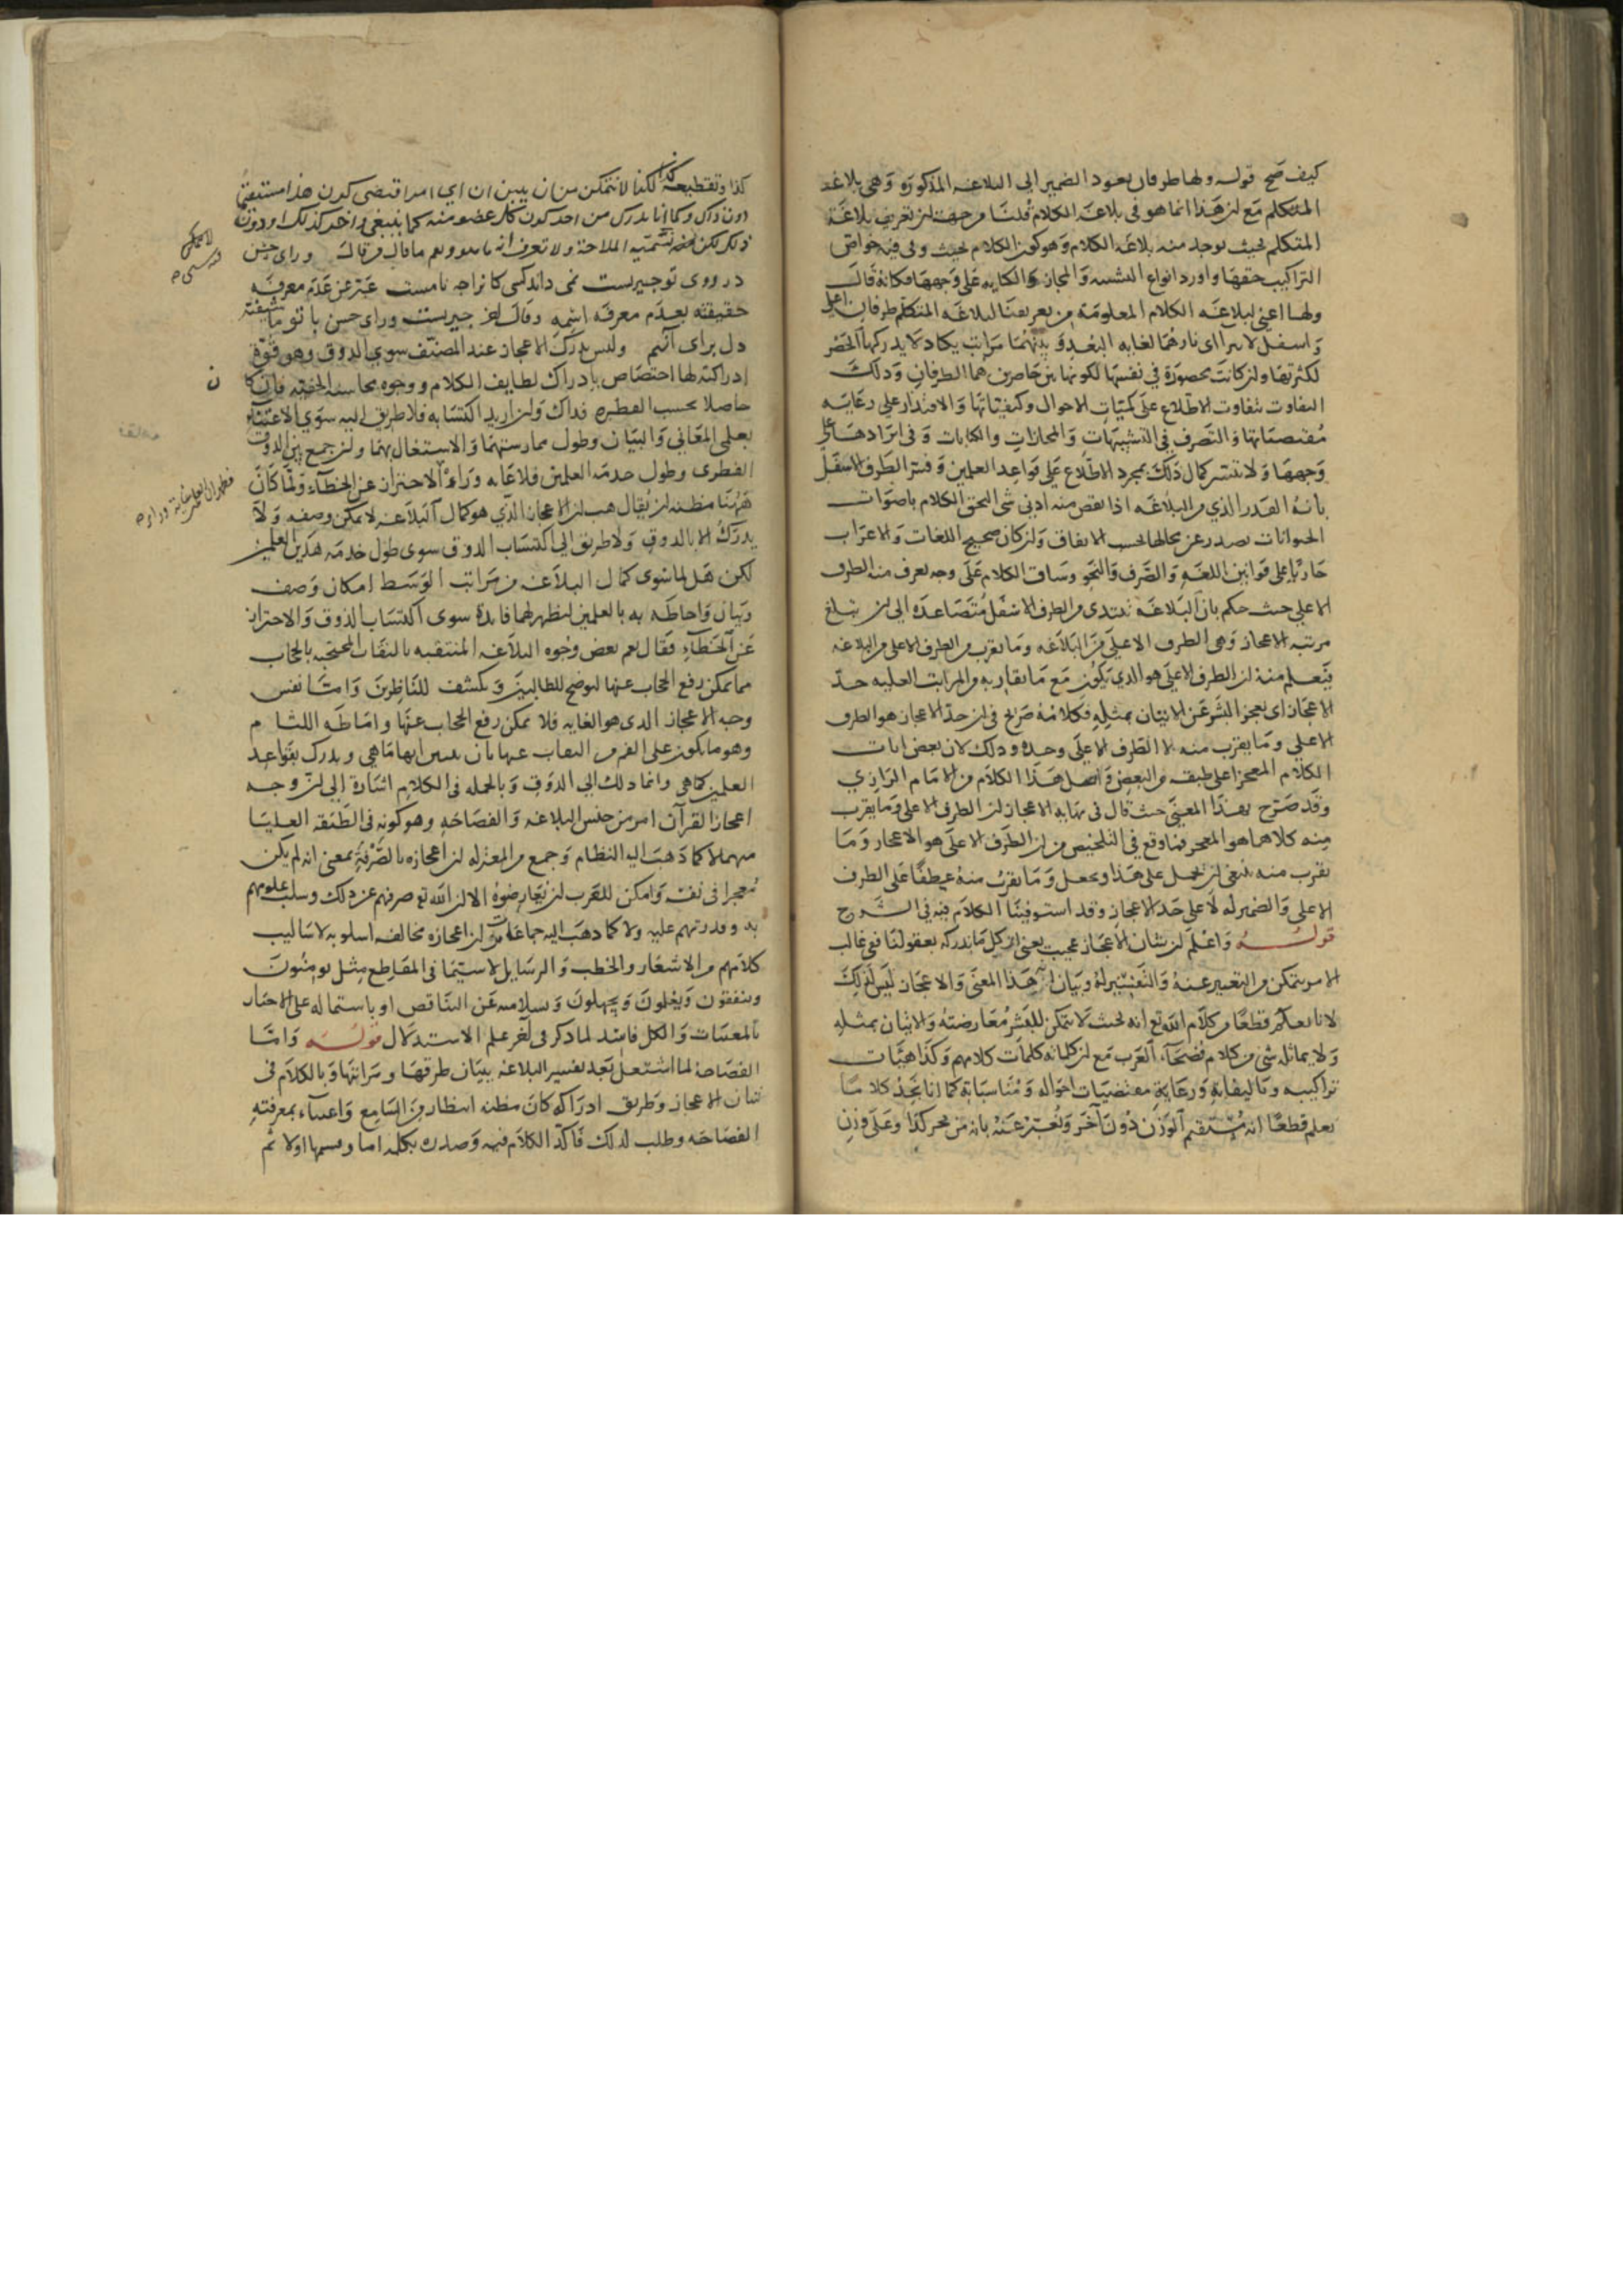 كيف صح قوله ولها طرفان بعود الضمير الى البلاغة المذكورة وهي بلاغة
المتكلم مع ان هذا انما هو في بلاغة الكلام قلنا من جهة ان تعريف بلاغة
المتكلم بحيث يوجد منه بلاغة الكلام وهو كون الكلام بحيث وفي فيه خواص
التراكيب حقها واورد انواع التشبيه والمجاز والكناية على وجهها فكانه قال
ولها اعني لبلاغة الكلام المعلومة من تعريفنا لبلاغة المتكلم طرفان اعلى
واسفل لا يتراآى نارهما لغاية البعد وبينهما مراتب يكاد لا يدركها الحصر
لكثرتها وان كانت محصورة في نفسها لكونها بين حاصرين هما الطرفان وذلك
التفاوت بتفاوت الاطلاع على كميات الاحوال وكيفياتها والاقتدار على رعاية
مقتضياتها والتصرف في التشبيهات والمجازات والكنايات وفي ايرادها على
وجهها ولا يتيسر كمال ذلك بمجرد الاطلاع على قواعد العلمين وفسر الطرف الاسفل
بانه القدر الذي من البلاغة اذا نقص منه ادنى شي التحق الكلام باصوات
الحيوانات تصدر عن محالها بحسب الاتفاق وان كان صحيح اللغات والاعراب
جاريا على قوانين اللغة والصرف والنحو وساق الكلام على وجه يعرف منه الطرف
الاعلى حيث حكم بان البلاغة تبتدى من الطرف الاسفل متصاعدة الى ان تبلغ
مرتبة الاعجاز وهي الطرف الاعلى من البلاغة وما يقرب من الطرف الاعلى من البلاغة
فيعلم منه ان الطرف الاعلى هو الذي يكون مع ما يقاربه من المراتب العلية حد
الاعجاز اي يعجز البشر عن الاتيان بمثله فكلامه صريح في ان حد الاعجاز هو الطرف
الاعلى وما يقرب منه لا الطرف الاعلى وحده وذلك لان بعض ايات
الكلام المعجز اعلى طبقة من البعض واصل هذا الكلام من الامام الرازي
وقد صرح بهذا المعنى حيث قال في نهاية الاعجاز ان الطرف الاعلى وما يقرب
منه كلاهما هو المعجز فما وقع في التلخيص من ان الطرف الاعلى هو الاعجاز وما
يقرب منه ينبغي ان يحمل على هذا ويجعل وما يقرب منه عطفا على الطرف
الاعلى والضمير له لا على حد الاعجاز وقد استوفينا الكلام فيه في الشرح
قوله واعلم ان شان الاعجاز عجيب يعني ان كل ما ندركه بعقولنا ففي غالب
الامر نتمكن من التعبير عنه وبيان هذا المعنى والاعجاز ليس كذلك
لانا نعلم قطعا من كلام الله تع انه بحيث لا يتمكن للبشر معارضته والاتيان بمثله
ولا يماثله شي من كلام فصحاء العرب مع ان كلماته كلمات كلامهم وكذا هيات
تراكيبه وتاليفاته ورعاية مقتضيات احواله ومناسباته كما انا نجد كلاما
نعلم قطعا انه مستقيم الوزن دون آخر ونعبر عنه بانه من بحر كذا وعلى وزن
كذا وتقطيعه كذا لكنا لا نتمكن من ان نبين ان اي امر اقتضى كون هذا مستقيما
دون ذاك وكما انا ندرك من احد كون كل عضو منه كما ينبغي واخر كذلك او دون
ذلك لكن نسميه الملاحة ولا نعرف انه ما هو ونعم ما قال من قال وراى حسن
در روى تو چيزيست نمى داند كسى كانرا چه نامست عبر عن عدم معرفة
حقيقته بعدم معرفة اسمه وقال اخر چيزيست وراى حسن با تو ما شيفته
دل براى آنيم وليس يدرك الاعجاز عند المصنف سوى الذوق وهو قوة
ادراكية لها اختصاص بادراك لطايف الكلام ووجوه محاسنه الخفية فان كا ن
حاصلا بحسب الفطرة فذاك وان اريد اكتسابه فلا طريق اليه سوى الاعتناء
بعلمي المعاني والبيان وطول ممارستهما والاشتغال بهما وان جمع بين الذوق
الفطري وطول خدمة العلمين فلا غاية وراءه الاحتراز عن الخطاء ولما كان
ههنا مظنة ان يقال هب ان الاعجاز الذي هو كمال البلاغة لا يمكن وصفه ولا
يدرك الا بالذوق ولا طريق الى اكتساب الذوق سوى طول خدمة هذين العلمين
لكن هل لما سوى كمال البلاغة من مراتب الوسط امكان وصف
وبيان واحاطة به بالعلمين ليظهر لهما فايدة سوى اكتساب الذوق والاحتراز
عن الخطاء فقال نعم بعض وجوه البلاغة المنتقبة بالنقاب المحتجبة بالحجاب
مما يمكن رفع الحجاب عنها ليوضح للطالبين ويكشف للناظرين واما نفس
وجه الاعجاز الذي هو الغاية فلا يمكن رفع الحجاب عنها واماطة اللثام
وهو ما يكون على الفم من النقاب عنها بان يبين انها ما هي ويدرك بقواعد
العلمين كما هي وانما ذلك الى الذوق وبالجملة في الكلام اشارة الى ان وجه
اعجاز القرآن امر من جنس البلاغة والفصاحة وهو كونه في الطبقة العليا
منهما لا كما ذهب اليه النظام وجمع من المعتزلة ان اعجازه بالصرفة بمعنى انه لم يكن
معجزا في نفسه وامكن للعرب ان يعارضوه الا ان الله تع صرفهم عن ذلك وسلب علومهم
به وقدرتهم عليه ولا كما ذهب اليه جماعات من ان اعجازه مخالفة اسلوبه لاساليب
كلامهم من الاشعار والخطب والرسايل لا سيما في المقاطع مثل يومنون
وينفقون ويعلمون ويجهلون وسلامته عن التناقض او باشتماله على الاخبار
بالمغيبات والكل فاسد لما ذكر في آخر علم الاستدلال قوله واما
الفصاحة لما اشتغل بعد تفسير البلاغة ببيان طرقها ومراتبها وبالكلام في
شان الاعجاز وطريق ادراكه كان مظنة استظار من السامع واعتناء بمعرفة
الفصاحة وطلب لذلك فاكد الكلام فيه وصدره بكلمة اما وقسمها اولا ثم